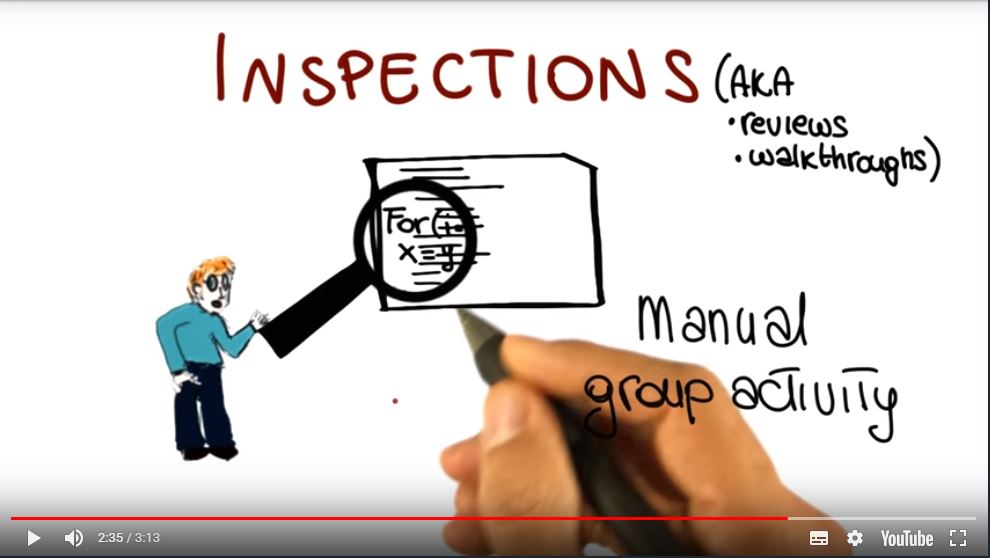 INSPECTIONS (AKA
• reviews
• walkthroughs)
For (
x = y
Manual
group activity
2:35 / 3:13
YouTube